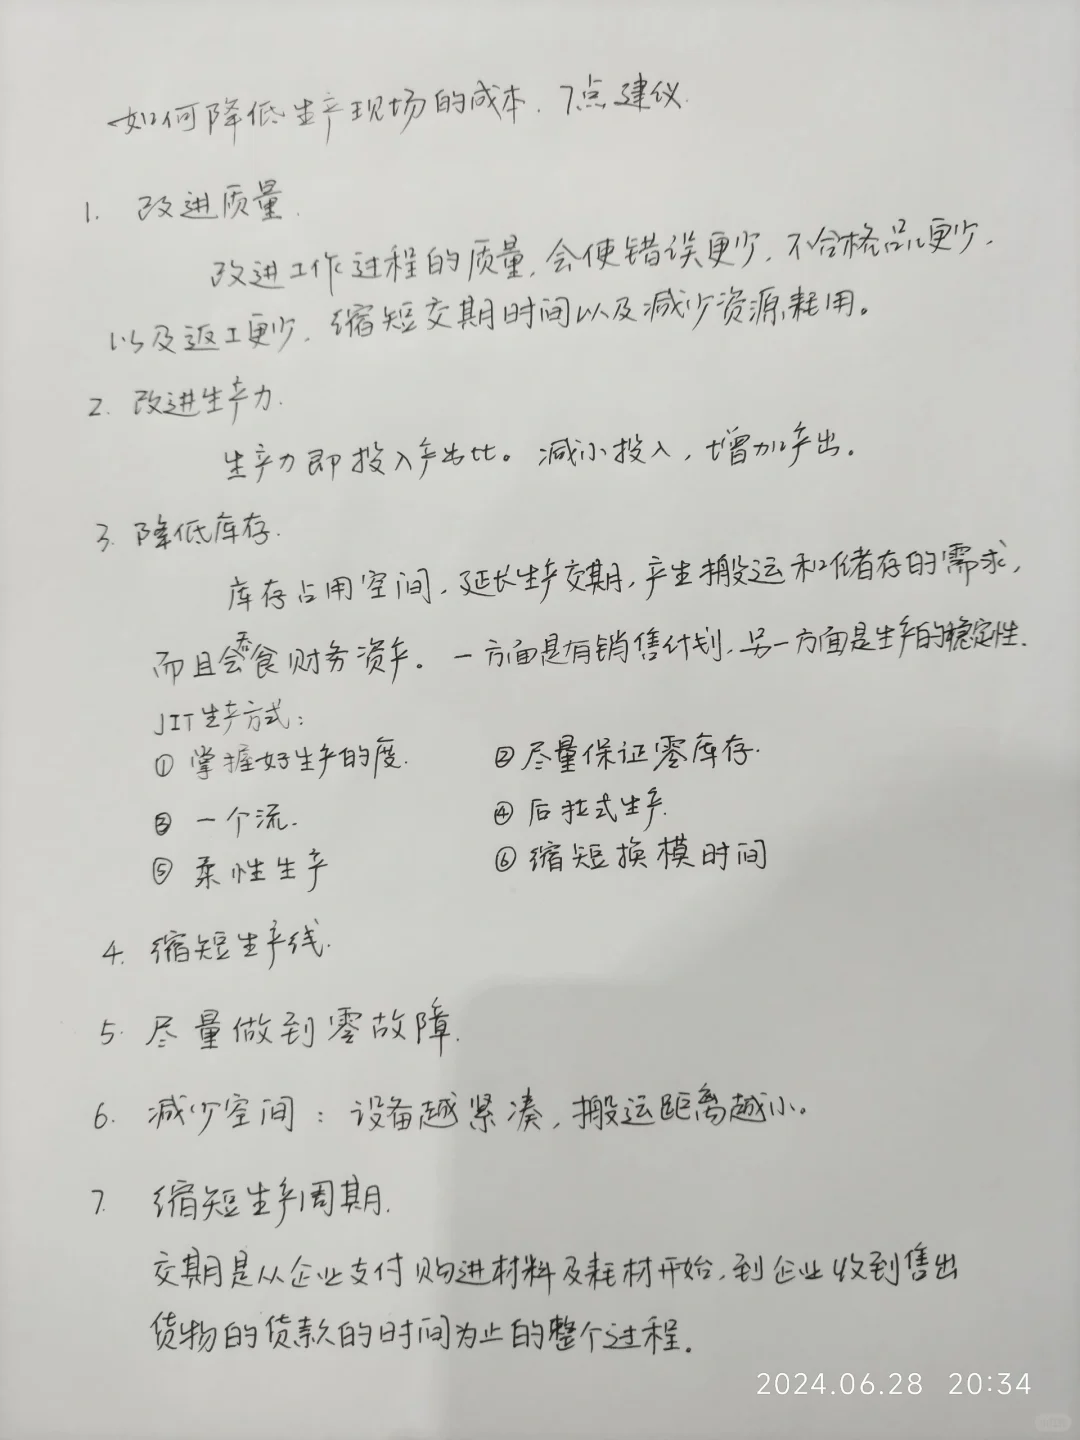 如何降低生产现场的成本. 7点建议.
1. 改进质量.
改进工作过程的质量, 会使错误更少, 不合格品更少,
以及返工更少, 缩短交期时间以及减少资源耗用。
2. 改进生产力.
生产力即投入产出比。减小投入, 增加产出。
3. 降低库存.
库存占用空间, 延长生产交期, 产生搬运和储存的需求,
而且会吞食财务资产。一方面是有销售计划, 另一方面是生产的稳定性.
JIT生产方式:
① 掌握好生产的度. ② 尽量保证零库存.
③ 一个流. ④ 后拉式生产.
⑤ 柔性生产 ⑥ 缩短换模时间
4. 缩短生产线.
5. 尽量做到零故障.
6. 减少空间: 设备越紧凑, 搬运距离越小。
7. 缩短生产周期.
交期是从企业支付购进材料及耗材开始, 到企业收到售出
货物的货款的时间为止的整个过程。
2024.06.28 20:34